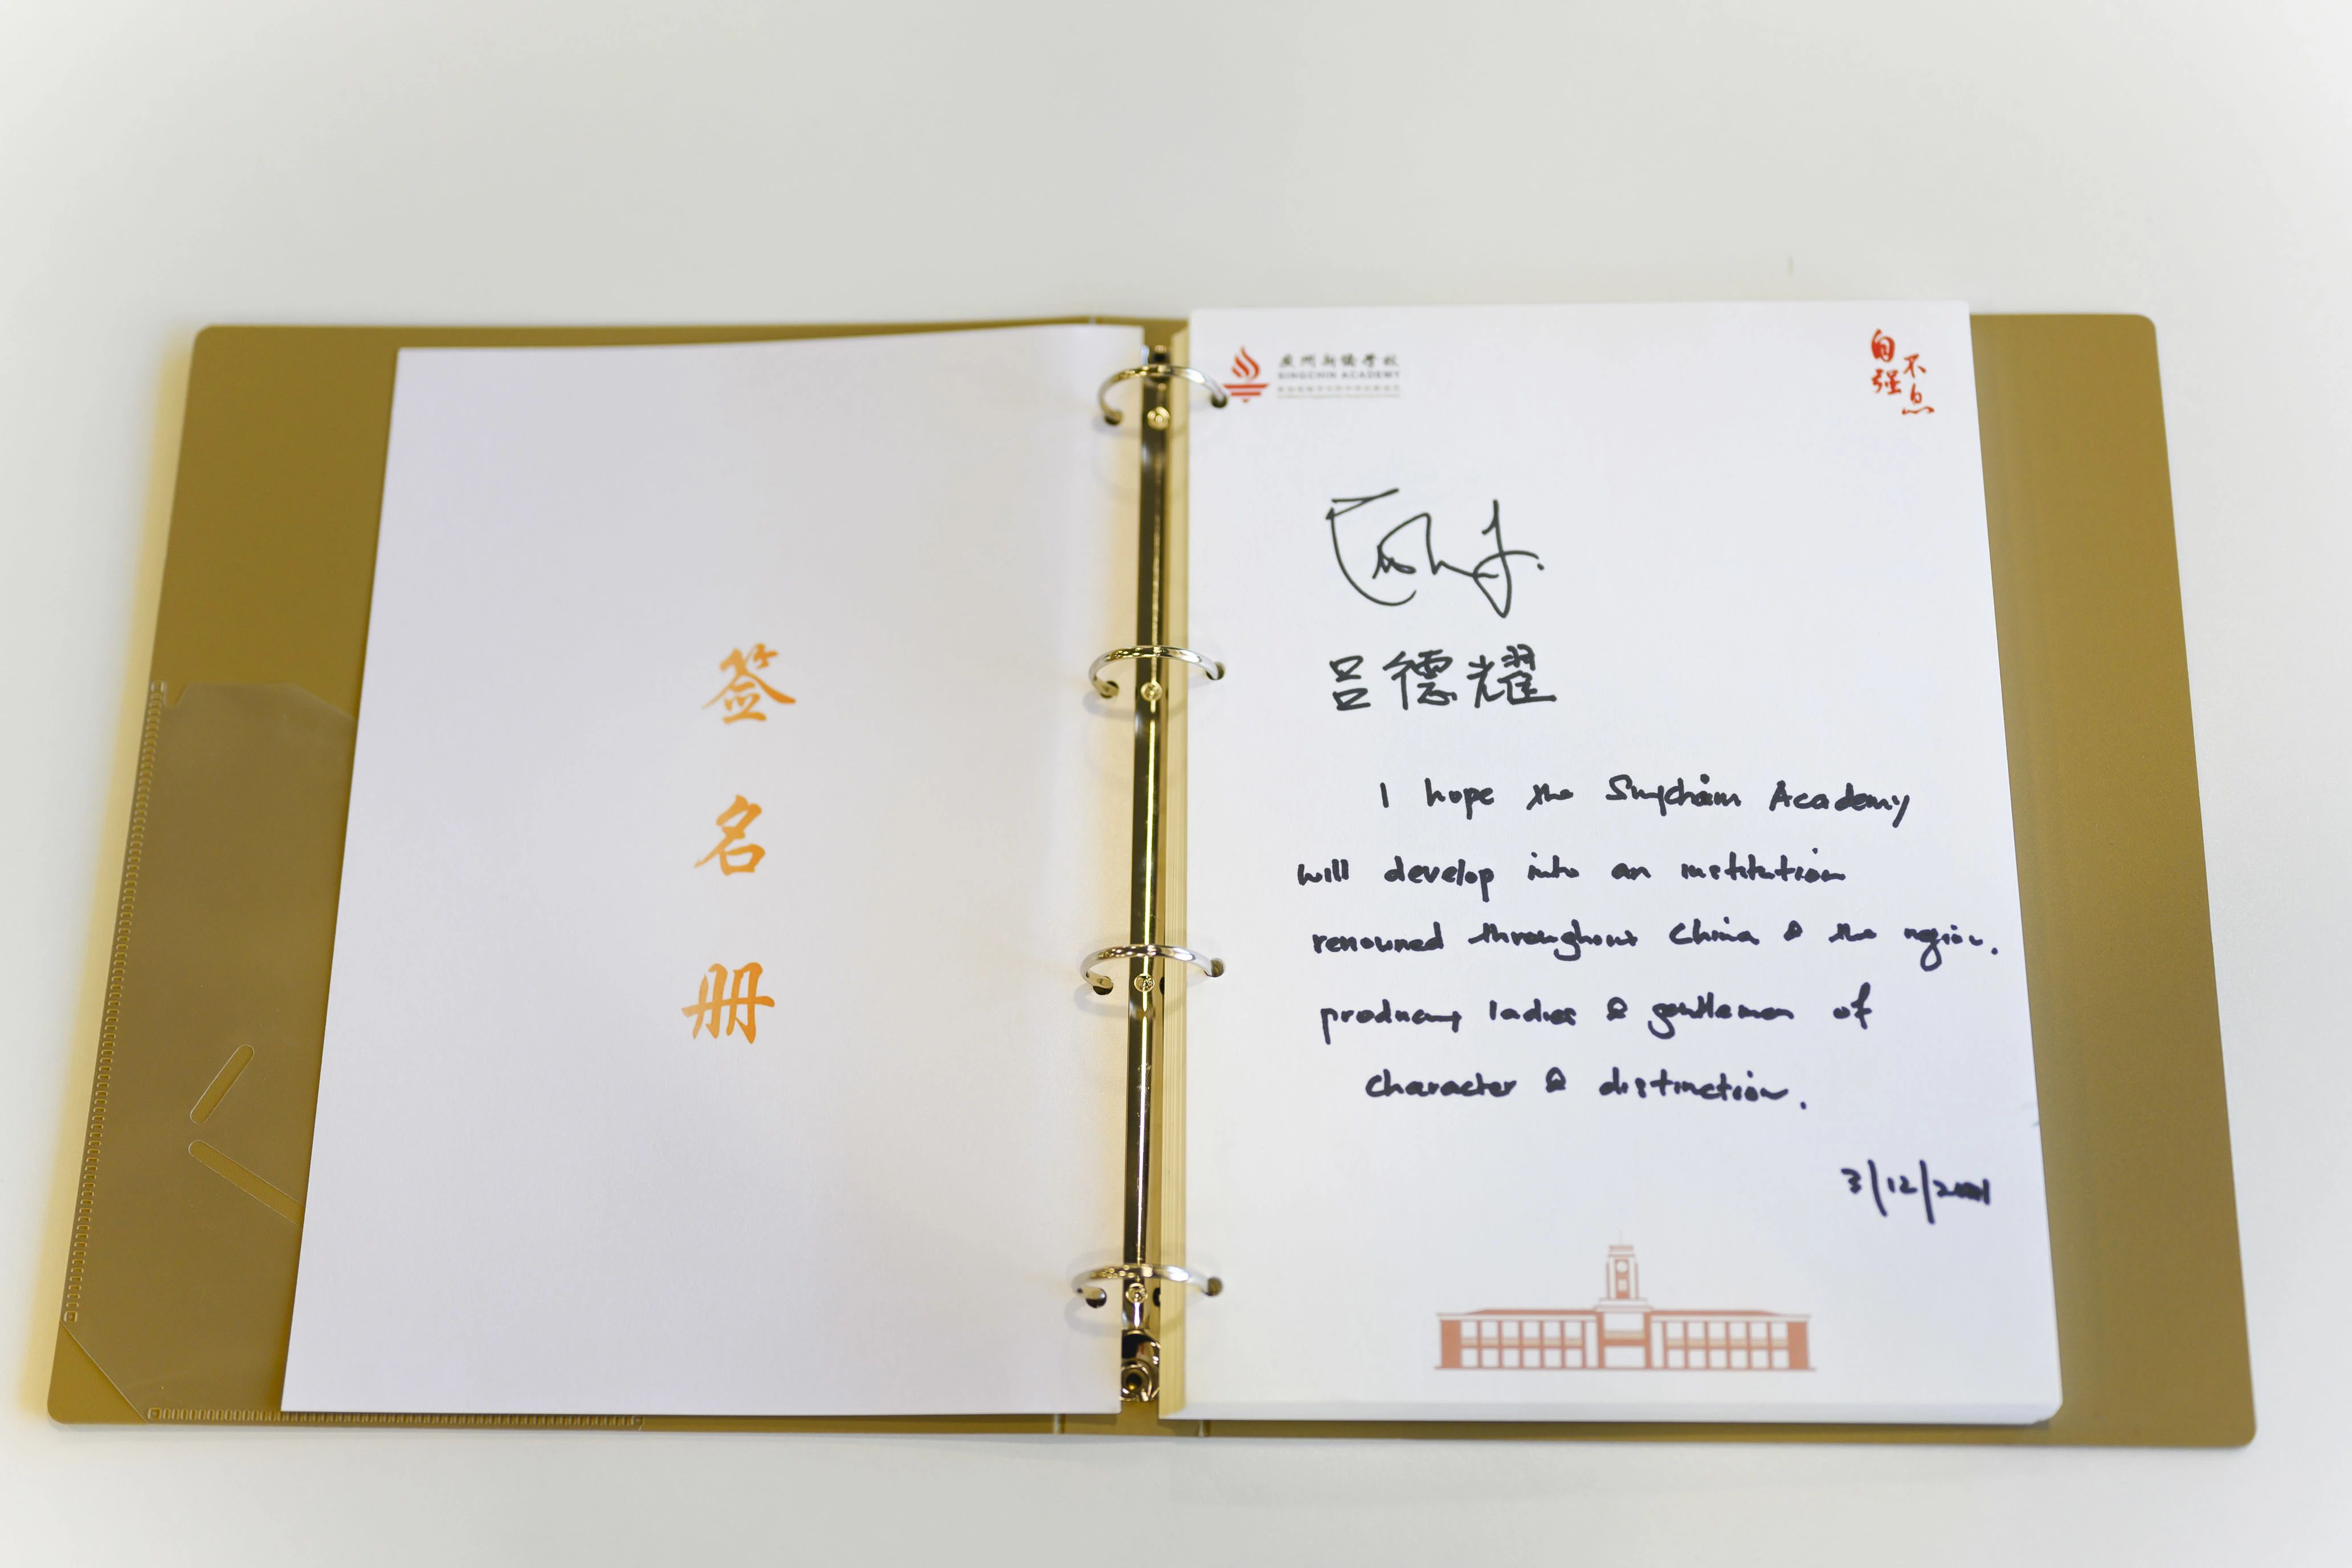 签
名
册
广州新侨学校
SINGCHIN ACADEMY
自强
不息
吕德耀
I hope the Singchin Academy
will develop into an institution
renowned throughout China & the region.
producing ladies & gentlemen of
character & distinction.
3/12/2021